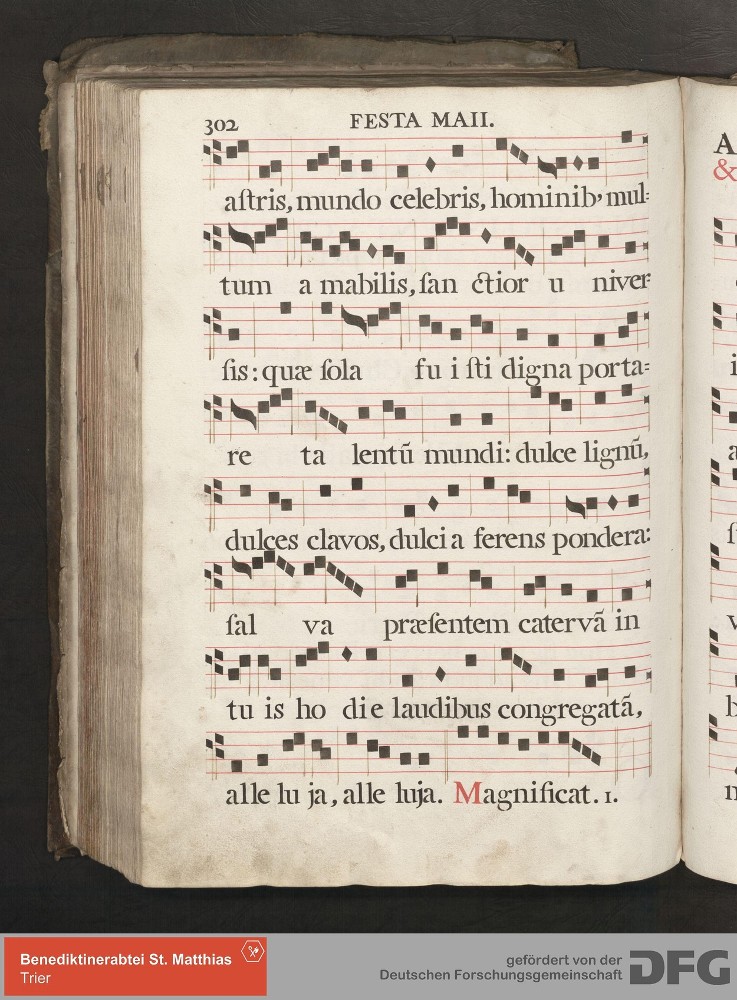 302 FESTA MAII.
aſtris, mundo celebris, hominib, mul=
tum a mabilis, ſan ctior u niver
ſis: quæ ſola fu i ſti digna porta=
re ta lentū mundi: dulce lignū,
dulces clavos, dulci a ferens pondera:
ſal va præſentem catervā in
tu is ho di e laudibus congregatā,
alle lu ja, alle luja. Magnificat. 1.
A
&
Benediktinerabtei St. Matthias
Trier
gefördert von der
Deutschen Forschungsgemeinschaft
DFG